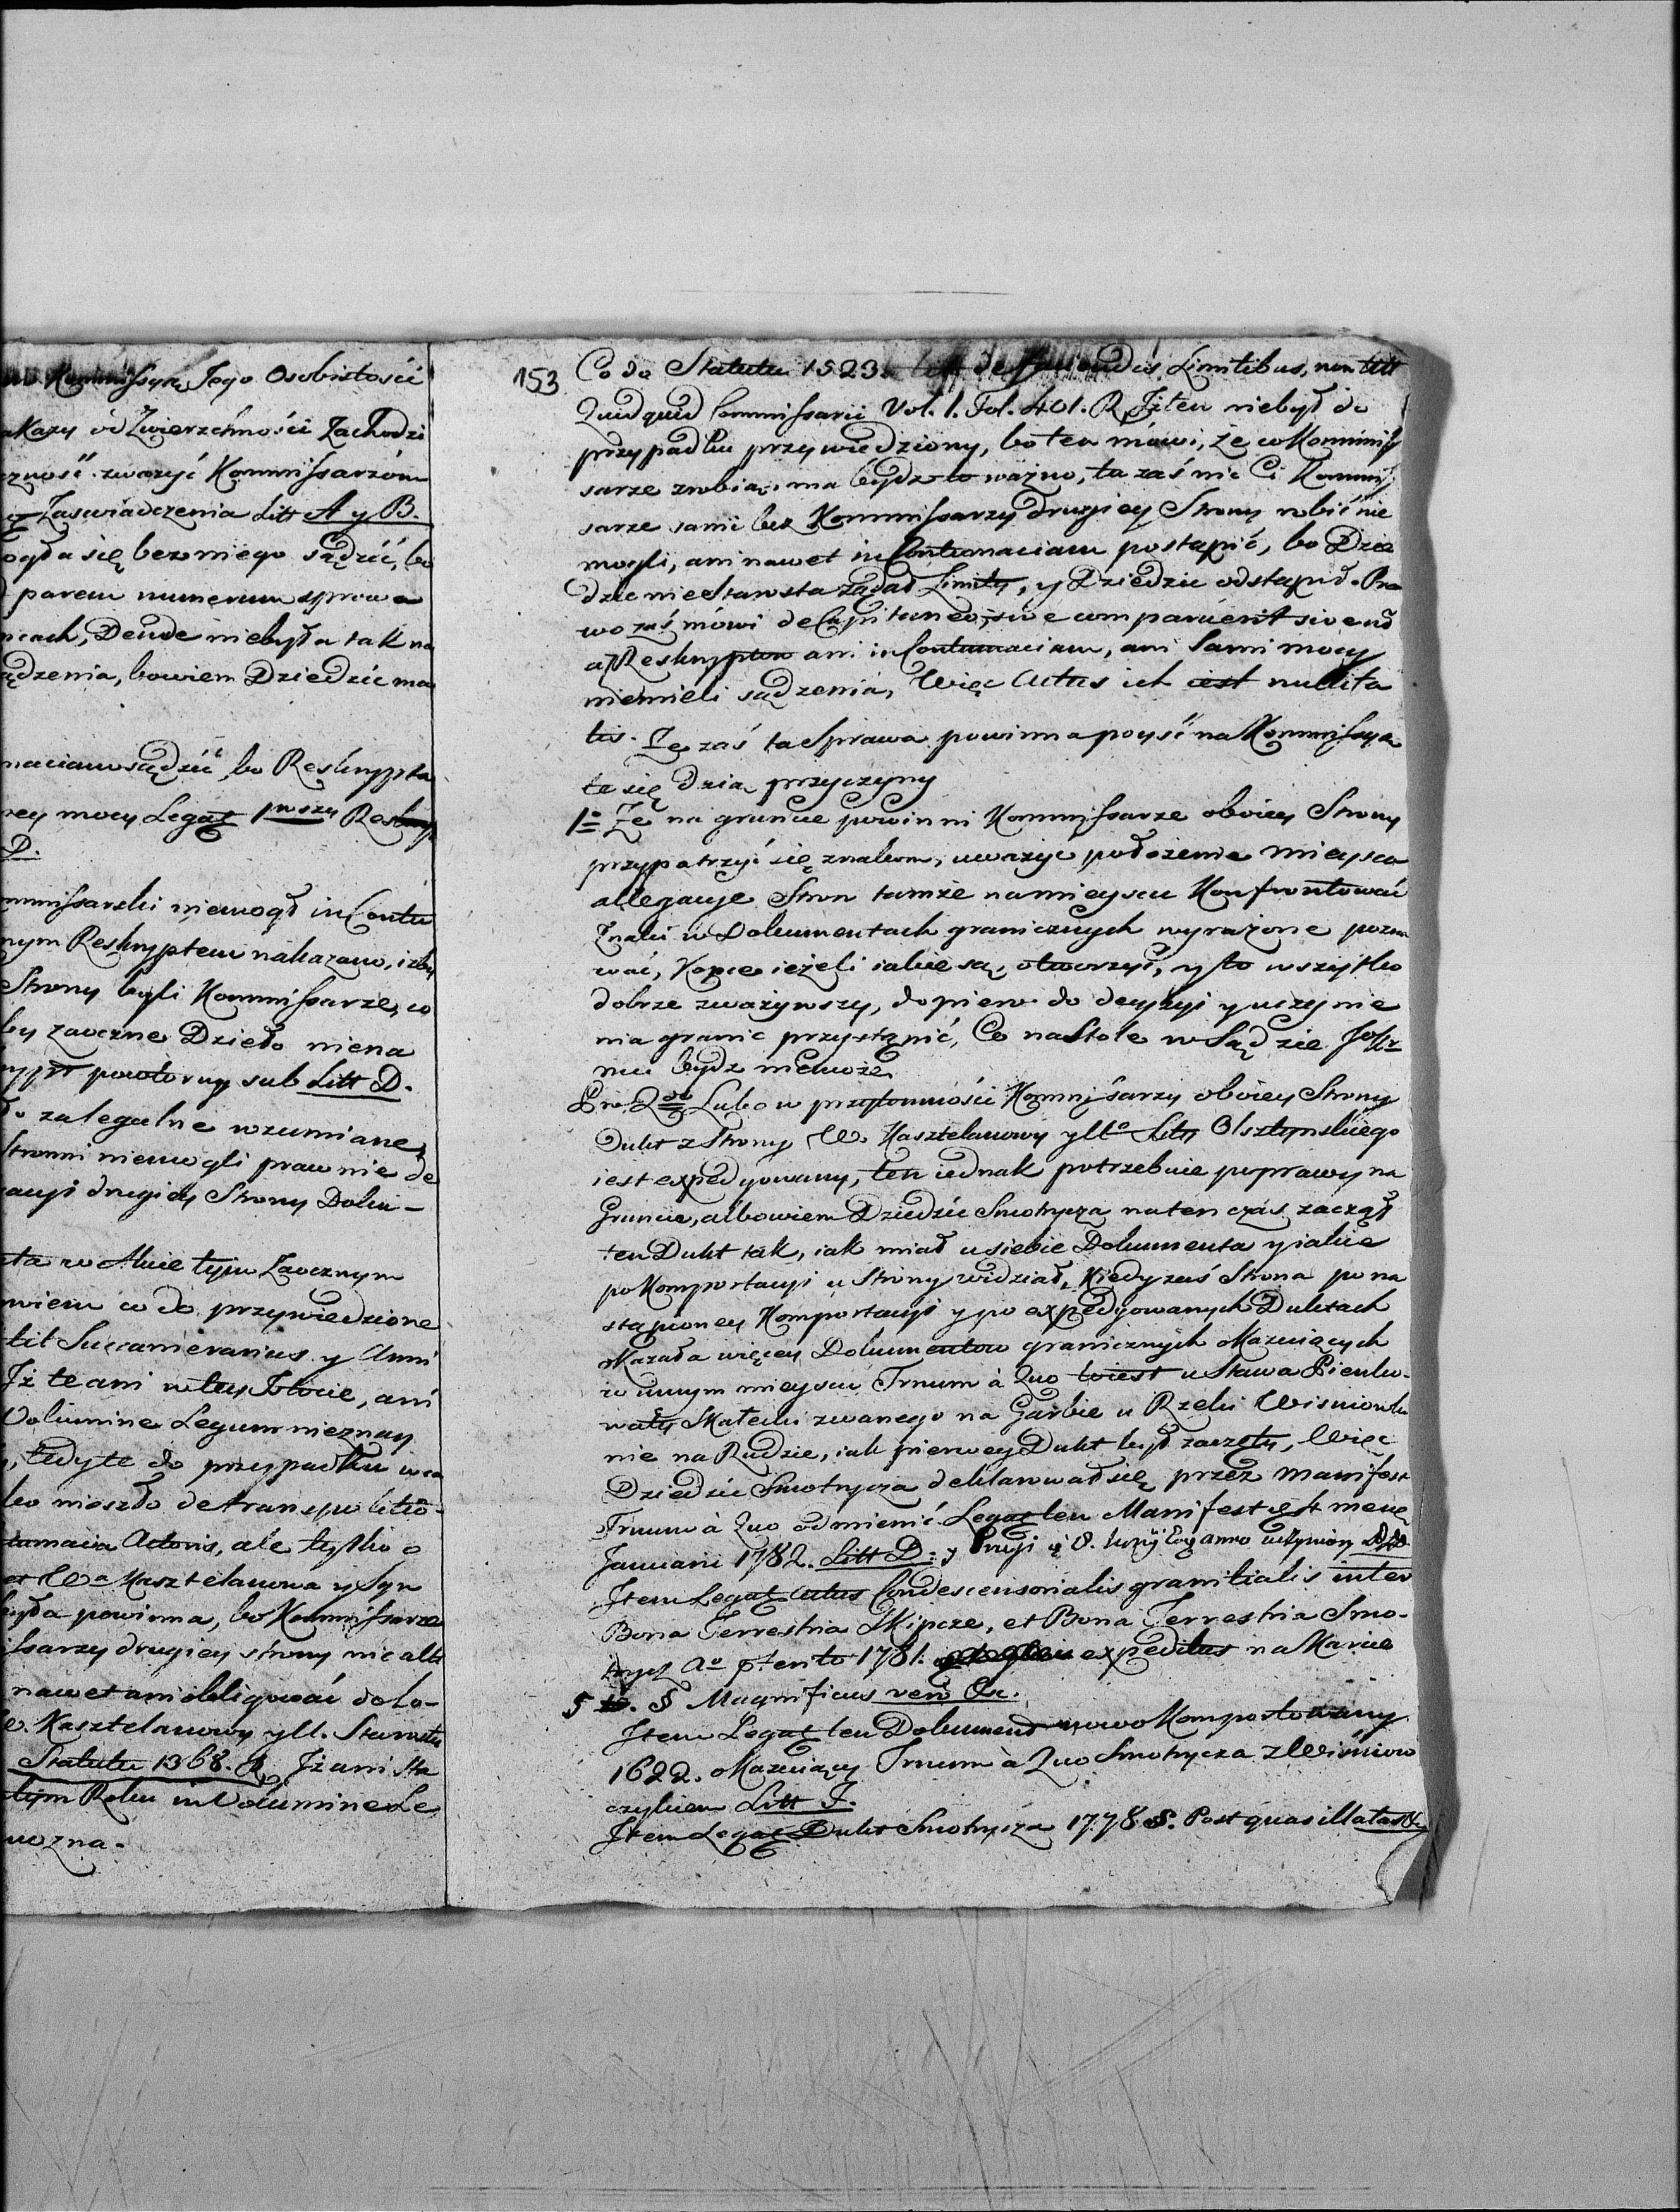 Kommissyą Jego Osobistości
akazy od Zwierzchności Zachodzi
czność zważyć Kommissarzóm
Zaswiadczenia Litt A y B.
ogła się bez niego sądzić, bo
parem numerum sprowa
ncach, Deude niebyła tak na
ądzenia, bowiem Dziedzic ma
maciam sądzić, bo Reskrypta
ney mocy Legat 1wszy Reskryp
D.
mmissarski niemogł in Contu
nym Reskryptem nakazano, izby
Strony byli Kommissarze, co
by zaoczne Dzieło niena
powtorny sub Litt D.
za legalne rozumiane,
Stronni niemogli prawnie de
acyi drugiey Strony Doku-
ta w Akcie tym Zaocznym
wiem co do przywiedzione
tit Succamerarius y Anni
Iż te ani w tey Istocie, ani
Volumine Legum nieznay
tedy te do przypadku
ko nioszło de transpo
tumacia Actoris, ale tylko o
Wa Kasztelanowa y Syn
była powinna, bo Kommissarze
ssarzy drugiey strony nic alb
nawet ani obligować do Lo-
Kasztelanowy y Starosta
Statutu 1368. R. Iż ani Sta
tym Roku in Volumine Le
uozna.
153 Co do Statutu 1523. de faciendis Limitibus, non
Quidquid Commissarii Vol. 1. Fol. 401. R Iż ten niebył do
przypadku przywiedziony, bo ten mówi, że co Kommis
sarze zrobią, ma bydz to ważno, ta zaś nic Ci Kommis
sarze sami bez Kommissarzy drugiey Strony robić nie
mogli, ani nawet in Contumaciam postąpić, bo Dzie
dzic nie Starosta żądał Limity, y Dziedzic odstąpił. Pra
wo zaś mówi de Capitaneo, sive comparuerit sive nō
a z Reskryptow ani in Contumaciam, ani Sami mocy
niemieli sądzenia, Więc Actus ich iest nullita
tis. Że zaś ta Sprawa powinna poyść na Kommissyą
te się dzia przyczyny
1o Że na gruncie powinni Kommissarze oboiey Strony
przypatrzyć się znakom, uważyć położenie mieysca
allegacye Stron tamże na mieyscu Konfrontować
Znaki w Dokumentach granicznych wyrażone pozna
wać, Kopce ieżeli iakie są, otworzyć, y to wszystko
dobrze zważywszy, dopiero do decyzyi y uczynie
nia granic przystąpić, Co na Stole w Sądzie
mu bydz niemoże
Pro 2do Lubo w przytomności Kommissarzy oboiey Strony
Dukt z Strony W. Kasztelanowy y Sty Olsztynskiego
iest expedyowany, ten iednak potrzebuie poprawy na
Gruncie, albowiem Dziedzic Smotrycza natenczas zaczął
ten Dukt tak, iak miał u siebie Dokumenta y iakie
po Komportacyi u Strony widział, Kiedy zaś Strona po na
stąpioney Komportacyi y po expedyowanych Duktach
okazała więcey Dokumentow granicznych okazuiących
w innym mieyscu Trnum à Quo to iest u Stawa Pienko-
waty Matecki zwanego na Garbie u Rzeki Wisniowki
nie na Rudzie, iak pierwey Dukt był zaczęty, Więc
Dziedzic Smotrycza deklarował się przez manifest
Trnum à Quo odmienić. Legat ten Manifest
Januarii 1782. Litt D: y Drugi d 8. anno uczyniony
Item Legat Actus Condescensorialis granitialis inter
Bona Terrestria Skipcze, et Bona Terrestria Smo-
trycz Ao 1781. expeditus na Karcie
5 to. § Magnificus vero &c.
Item Legat ten Dokument nowo Komportowany
1622. okazuiący Trnum à Quo Smotrycza z Wisniow
czykiem Litt F.
Item Legat Dukt Smotrycza 1778 §. Post quas illatas &c